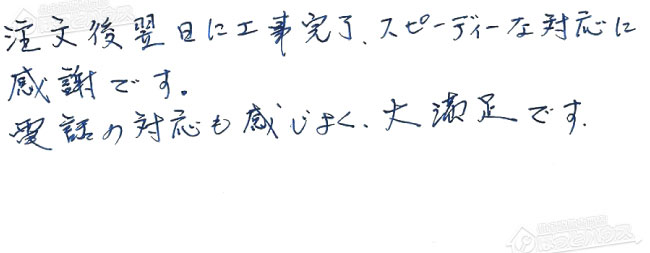 注文後翌日に工事完了、スピーディーな対応に
感謝です。
電話の対応も感じよく、大満足です.